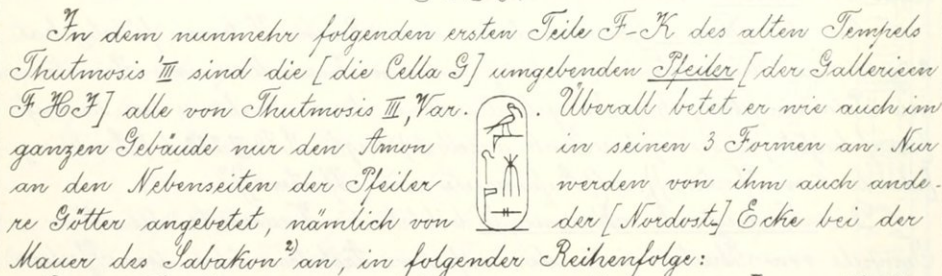 In dem nunmehr folgenden ersten Teile F-K des alten Tempels
Thutmosis' III sind die [die Cella G] umgebenden Pfeiler [der Gallerieen
F H J] alle von Thutmosis III, Var. . Überall betet er wie auch im
ganzen Gebäude nur den Amon in seinen 3 Formen an. Nur
an den Nebenseiten der Pfeiler werden von ihm auch ande-
re Götter angebetet, nämlich von der [Nordost-] Ecke bei der
Mauer des Sabakon 2) an, in folgender Reihenfolge: